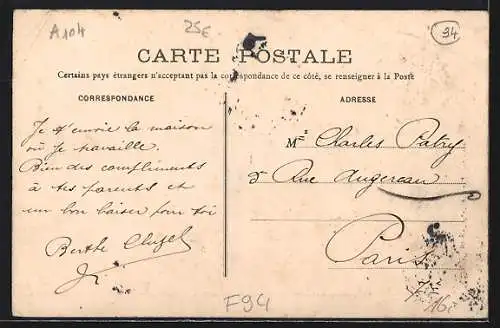 A104
25€
94
CARTE POSTALE
Certains pays étrangers n'acceptant pas la correspondance de ce côté, se renseigner à la Poste
CORRESPONDANCE
ADRESSE
Je t'envoie la maison
où je travaille.
Bien des compliments
à tes parents et
un bon baiser pour toi
Berthe
Mr Charles Patry
Rue Augereau
Paris
7e
F94